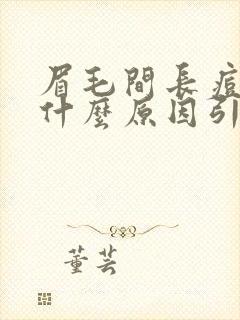 眉毛間長痘
什麼原因引
董芸